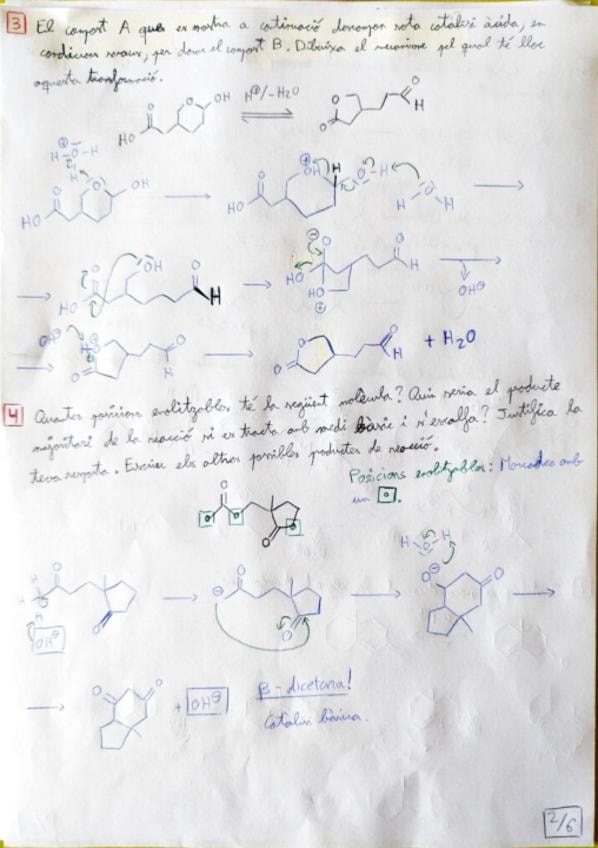 3 El compost A que es mostra a continuació descompon sota catàlisi àcida, en
condicions suaus, per donar el compost B. Dibuixa el mecanisme pel qual té lloc
aquesta transformació.
O OH H⊕/-H2O O H
HO O O
H-O-H
H O OH ⊕ OH H O-H O
HO HO H H
O OH O ⊖ O O
HO H HO H
HO ⊕ OH⊖
OH⊖ H O⊕ O O O + H2O
O H O H
4 Quantes posicions enolitzables té la següent molècula? Quin seria el producte
majoritari de la reacció si es tracta amb medi bàsic i s'escalfa? Justifica la
teva resposta. Escriu els altres possibles productes de reacció.
Posicions enolitzables: Marcades amb
un
O
O
H O H
H O O O⊖ O
H ⊖
H O O
OH⊖
O O + OH⊖ β-dicetona!
Catàlisi bàsica.
2/6